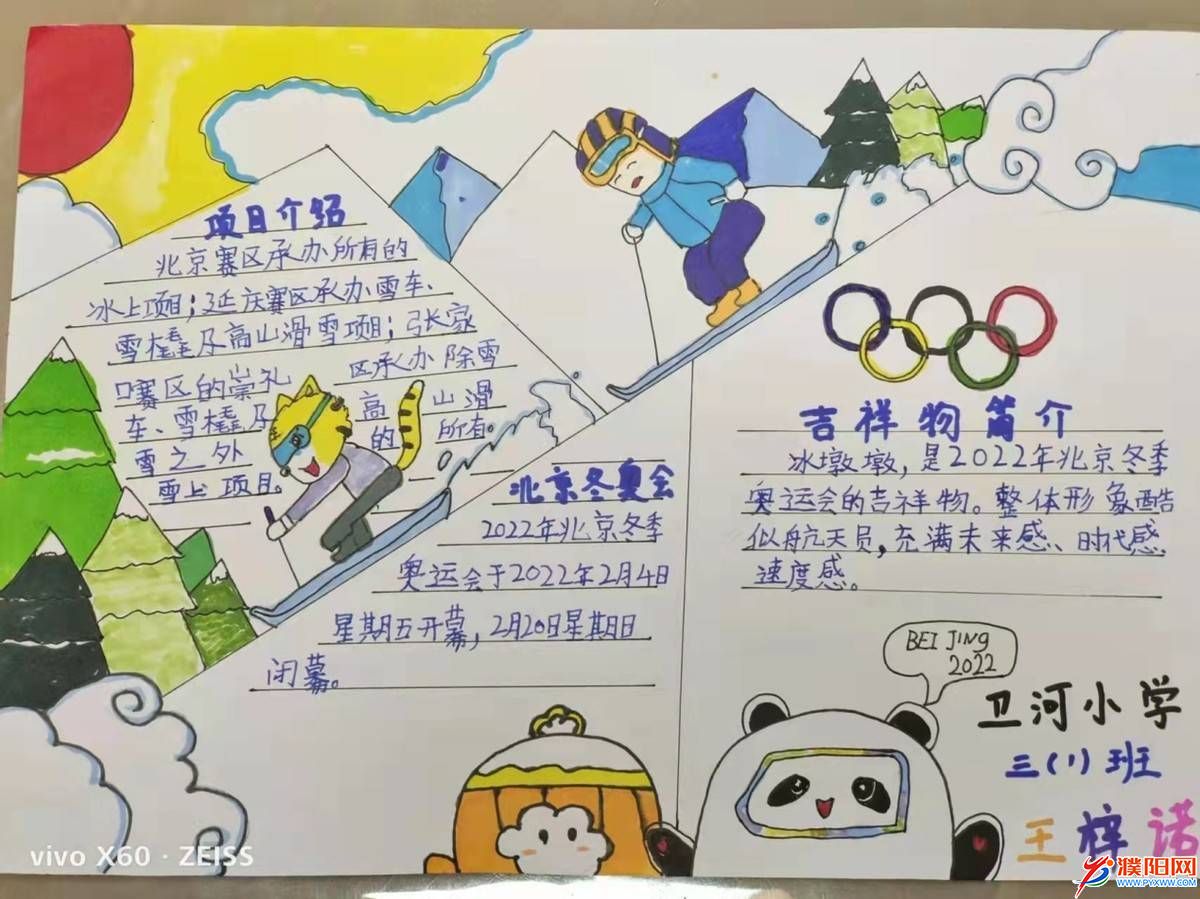 项目介绍
北京赛区承办所有的
冰上项目；延庆赛区承办雪车、
雪橇及高山滑雪项目；张家
口赛区的崇礼区承办除雪
车、雪橇及高山滑
雪之外的所有。
雪上项目。
北京冬奥会
2022年北京冬季
奥运会于2022年2月4日
星期五开幕，2月20日星期日
闭幕。
吉祥物简介
冰墩墩，是2022年北京冬季
奥运会的吉祥物。整体形象酷
似航天员，充满未来感、时代感，
速度感。
BEI JING
2022
卫河小学
三(1)班
王梓诺
vivo X60 · ZEISS
濮阳网
WWW.PYXWW.COM